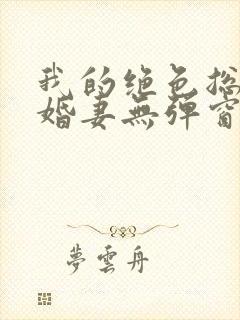 我的绝色总
婚妻無彈窗
夢雲舟